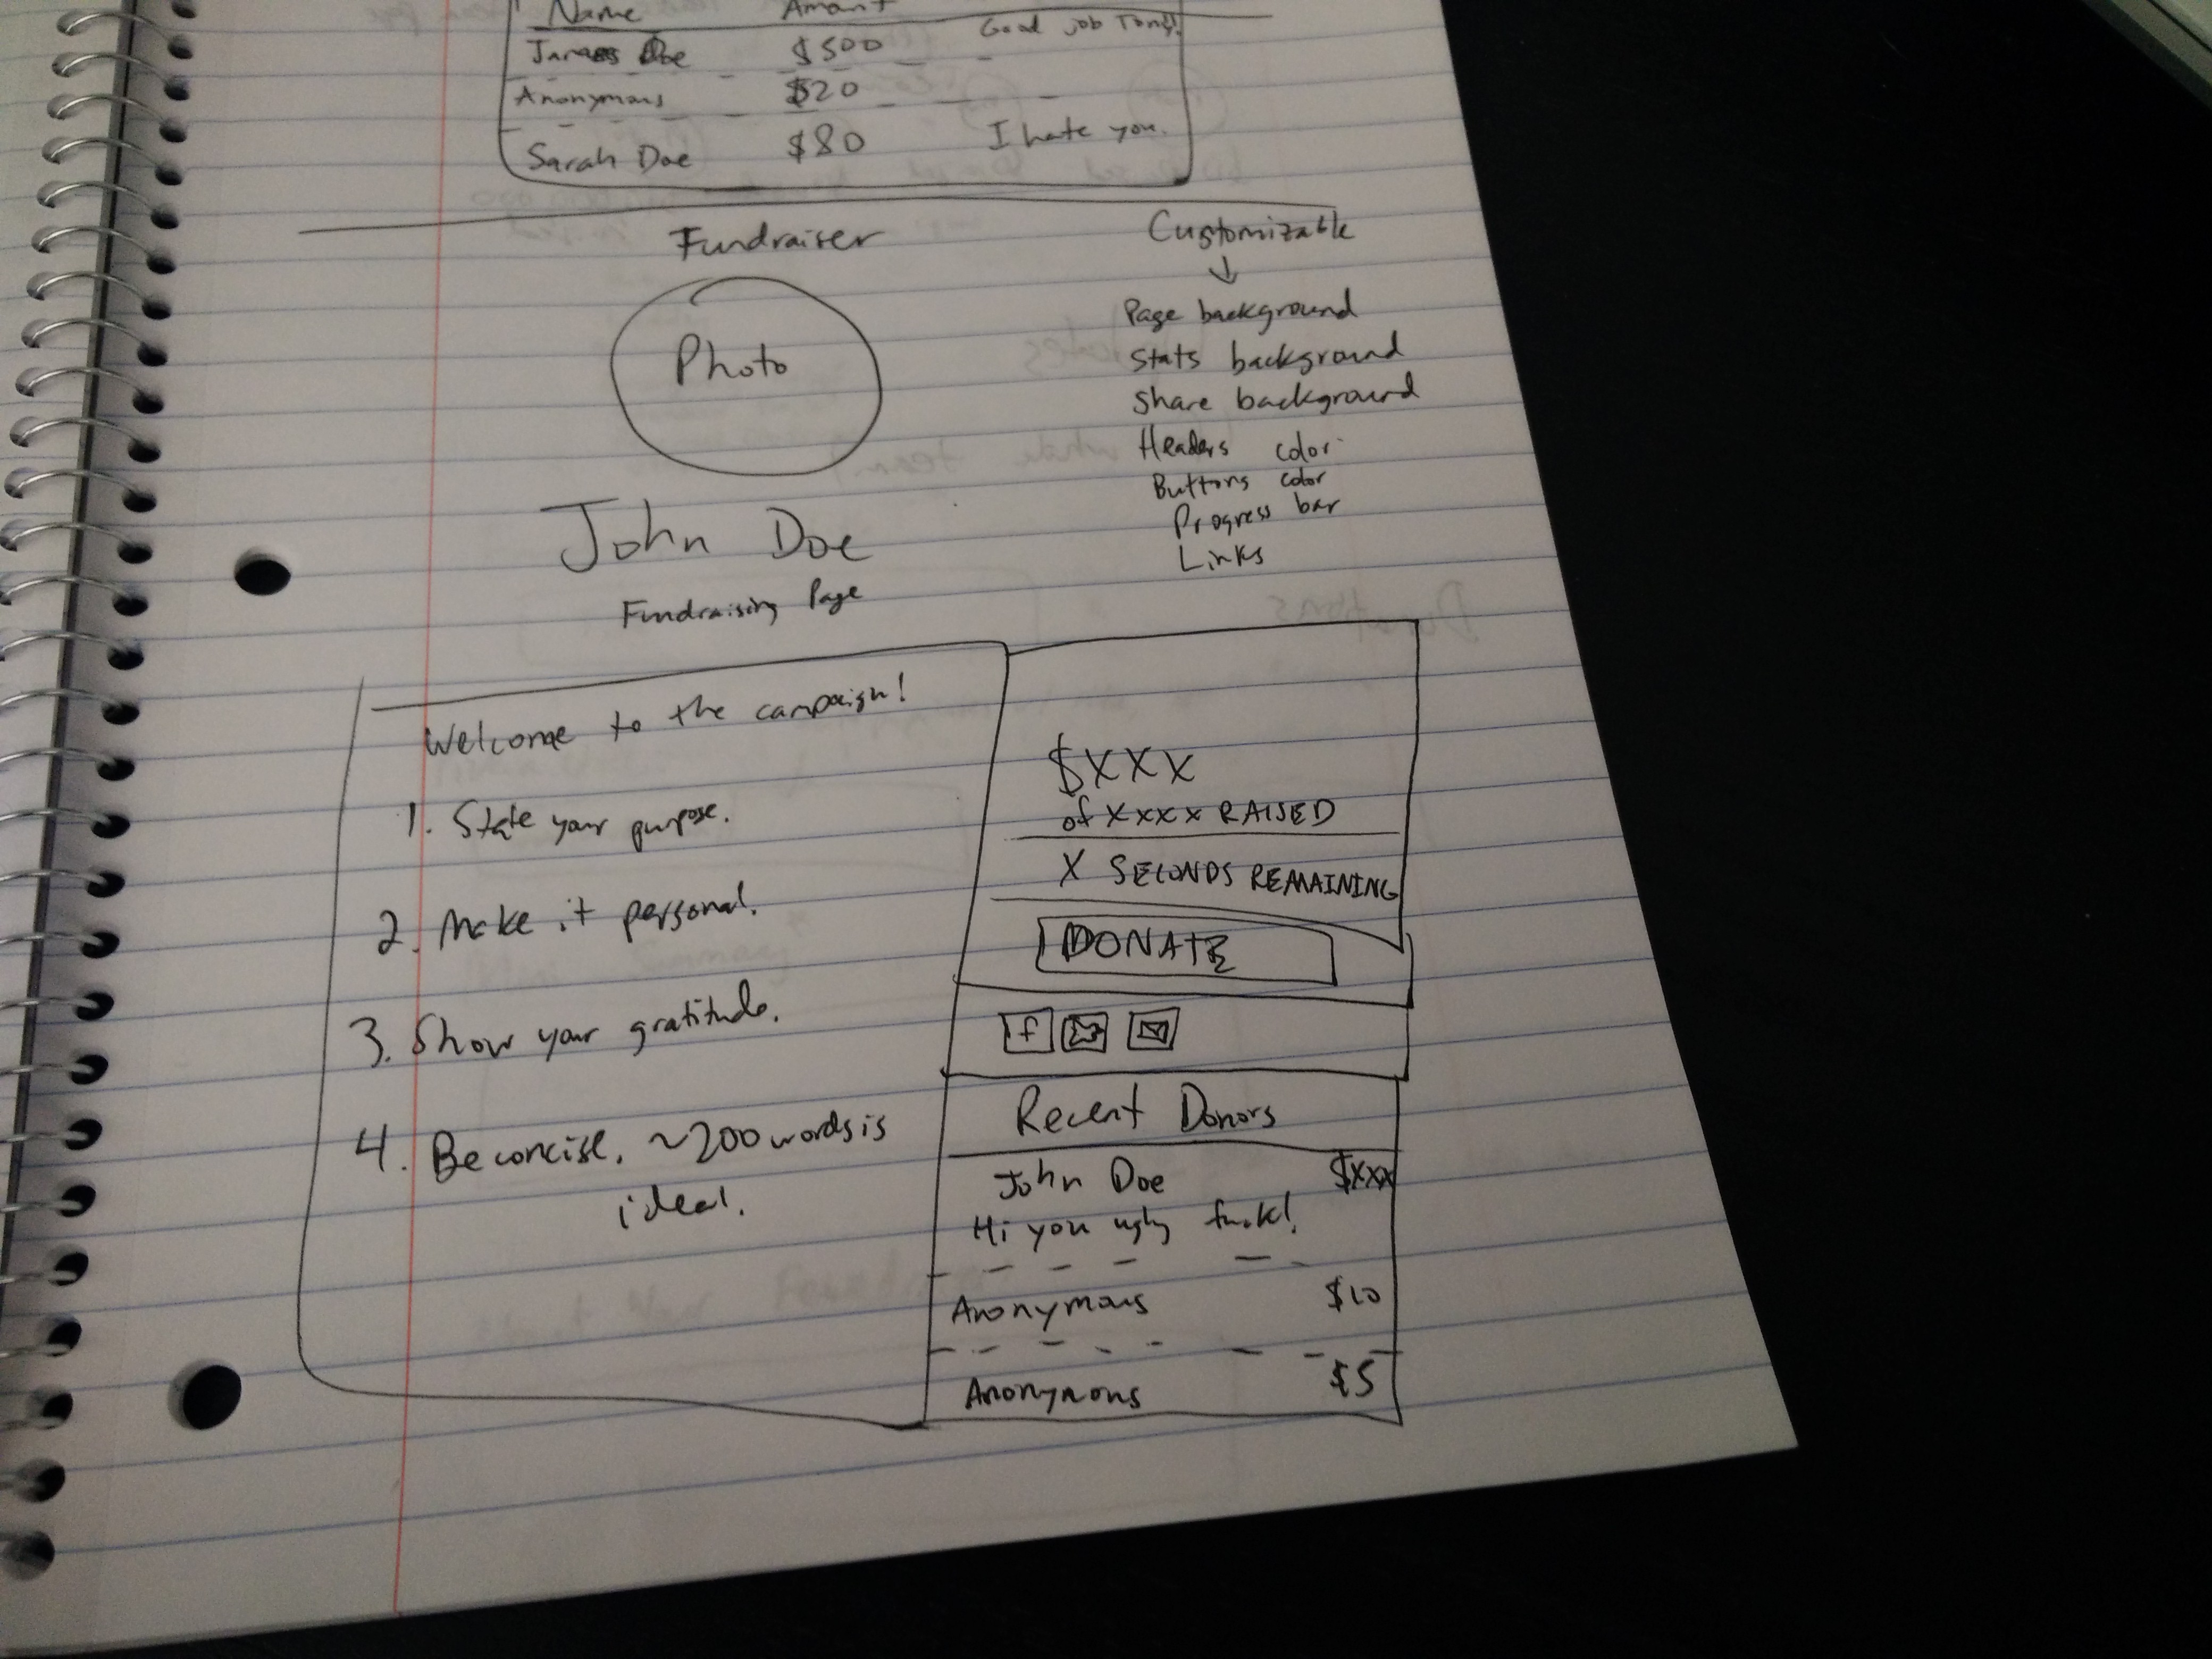 Name Amount
Good job Tony!
James Doe $500
Anonymous $20
Sarah Doe $80 I hate you.
Fundraiser
Customizable
↓
Page background
Stats background
Share background
Headers color
Buttons color
Progress bar
Links
Photo
John Doe
Fundraising Page
Welcome to the campaign!
1. State your purpose.
2. Make it personal.
3. Show your gratitude.
4. Be concise. ~200 words is
ideal.
$XXX
of XXXX RAISED
X SECONDS REMAINING
DONATE
f
Recent Donors
John Doe $XXX
Hi you ugly fuck!
Anonymous $10
Anonymous $5